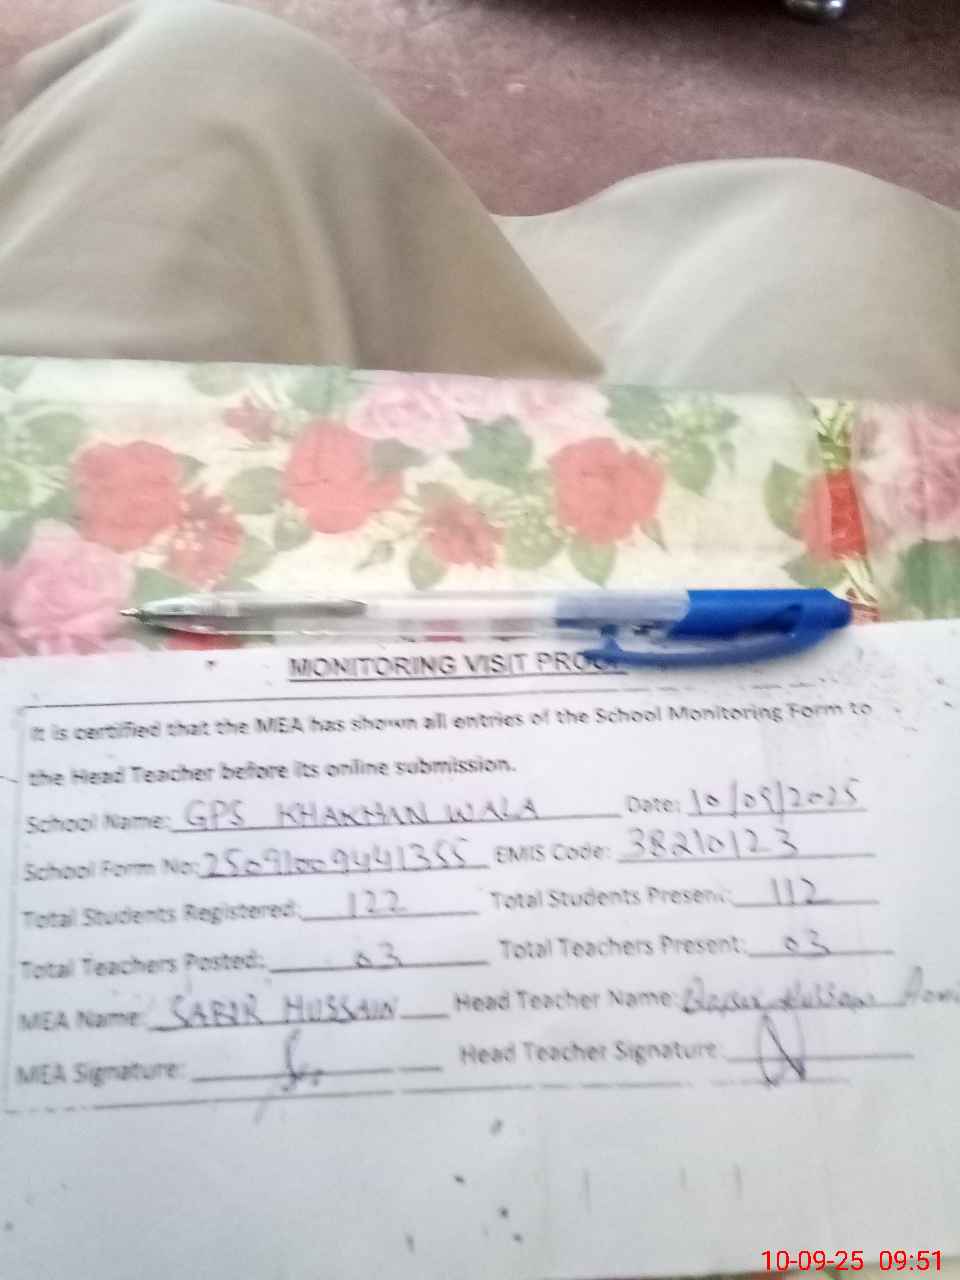 MONITORING VISIT PROOF
It is certified that the MEA has shown all entries of the School Monitoring Form to
the Head Teacher before its online submission.
School Name: GPS KHAKHAN WALA Date: 10/09/2025
School Form No: 25091009441355 EMIS Code: 38210123
Total Students Registered: 122 Total Students Present: 112
Total Teachers Posted: 03 Total Teachers Present: 03
MEA Name: SABIR HUSSAIN Head Teacher Name: Hussain
MEA Signature: Head Teacher Signature:
10-09-25 09:51